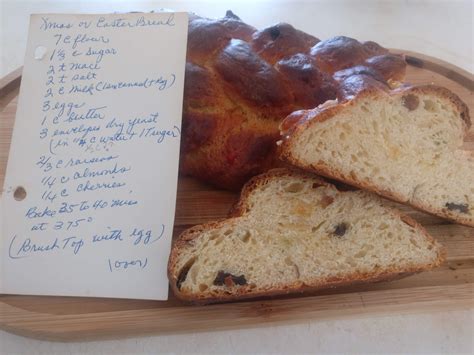 Xmas or Easter Bread
7 c flour
1 1/3 c sugar
2 t Mace
2 t salt
2 c milk (1 can canned + reg)
3 eggs
1 c butter
3 envelopes dry yeast
(in c water + 1 T sugar)
2/3 c raisins
1/4 c almonds
1/4 c cherries
Bake 35 to 40 mins
at 375°
(Brush Top with egg)
(over)